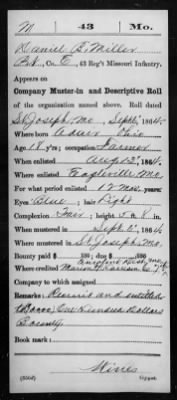 M 43 Mo.
Daniel B. Miller
Co. E, 43 Reg't Missouri Infantry.
Appears on
Company Muster-in and Descriptive Roll
of the organization named above. Roll dated
St Joseph, Mo, Sept 6, 1864.
Where born Adair Ohio
Age 18 y'rs; occupation Farmer
When enlisted Aug 12, 1864.
Where enlisted Eagleville, Mo.
For what period enlisted 12 mos. years.
Eyes Blue; hair Light
Complexion Fair; height 5 ft. 8 in.
When mustered in Sept. 6, 1864.
Where mustered in St Joseph, Mo.
Bounty paid $ 100; due $ 100
Where credited Marion Harrison Co.
Company to which assigned
Remarks: and entitled
to One Hundred Dollars
Bounty
Book mark:
Hines
(356d) Copyist.